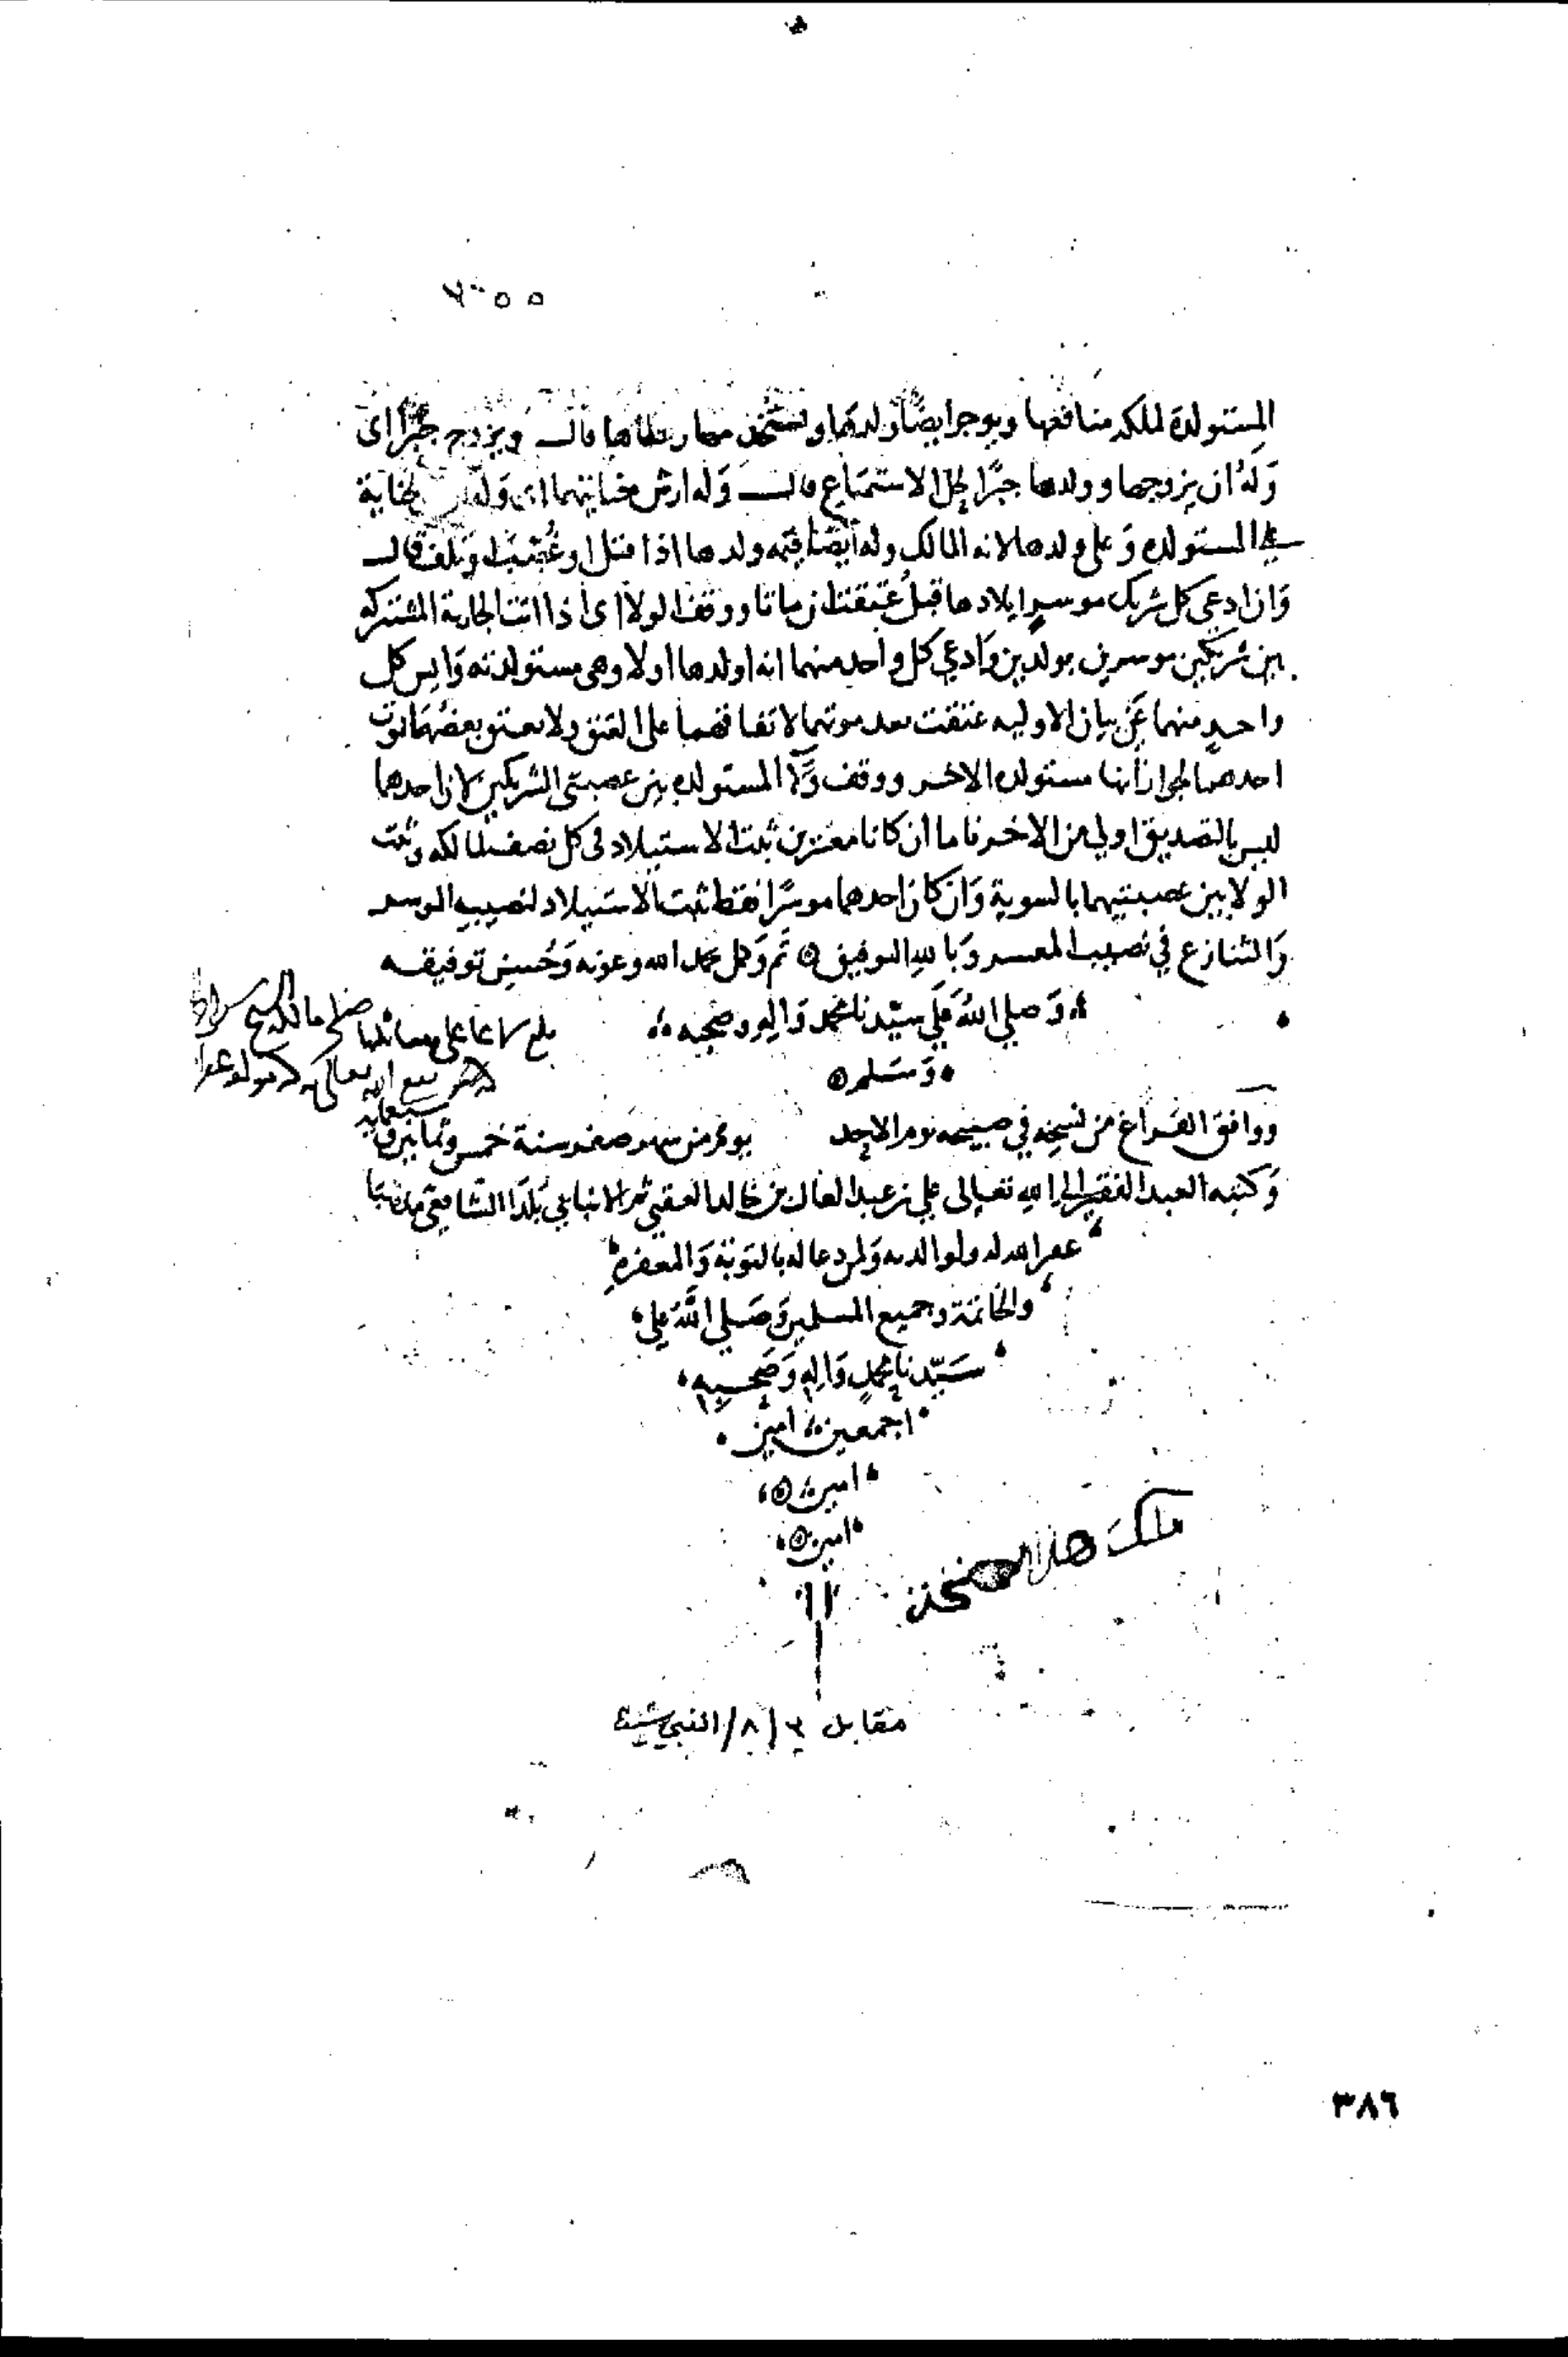 المستولدة لملكه منافعها ويوجر ايضا ولدها ويستخدمهما ويطاها قال ويزوج جبرا اى
وله ان يزوجها وولدها جبرا لحل الاستمتاع قال وله ارش جنايتهما اى وله لجناية
على المستولده وعلى ولدها لانه المالك وله ايضا قيمه ولدها اذا قتل او غصب وتلف قال
وان ادعى كل شريك موسر ايلادها قبل عتقت ان ماتا ووقف الولا اى اذا اتت الجارية المشتركه
بين شريكين موسرين بولدين وادعى كل واحد منهما انه اولدها اولا وهى مستولدته وايس كل
واحد منهما عن بيان الاوليه عتقت بعد موتهما لاتفاقهما على العتق ولا يعتق بعضها بموت
احدهما لجواز انها مستولده الاخر ووقف ولا المستولده بين عصبتى الشريكين لان احدهما
ليس بالتصديق اولى من الاخر فاما ان كانا معسرين ثبت الاستيلاد فى كل نصف لمالكه وثبت
الولا بين عصبتيهما بالسوية وان كان احدهما موسرا فقط ثبت الاستيلاد لنصيب الموسر
والتنازع في نصيب المعسر وبالله التوفيق ۞ تم وكمل بحمد الله وعونه وحسن توفيقه
وصلي الله على سيدنا محمد واله وصحبه
بلغ سماعا على
وسلم ۞
ووافق الفراغ من نسخه في صبيحه يوم الاحد من شهر صفر سنة خمس وثمانين
وكتبه العبد الفقير الى الله تعالى علي بن عبد العال بن خالد ثم بلدا الشافعي مذهبا
غفر الله له ولوالديه ولمن دعا له بالتوبة والمغفرة
والخاتمة وجميع المسلمين وصلي الله علي
سيدنا محمد واله وصحبه
اجمعين امين
امين ۞
امين ۞
مالك هذا
مقابل
٣٨٦